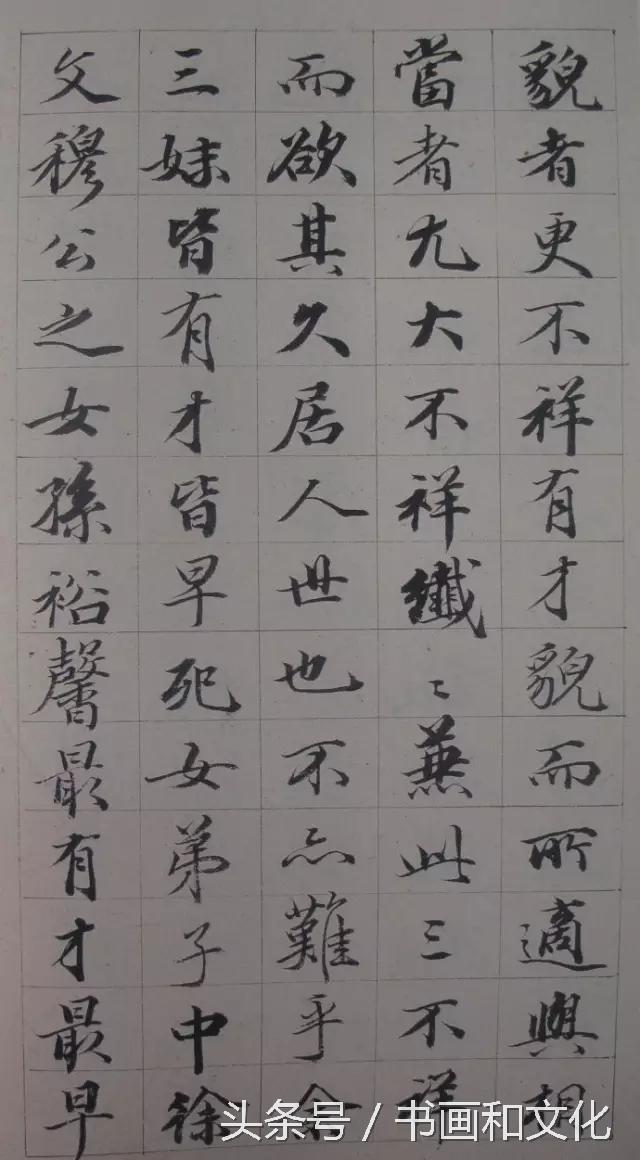 貌者更不祥有才貌而所適與相
當者尢大不祥纖〻兼此三不祥
而欲其久居人世也不亦難乎余
三妹皆有才皆早死女弟子中徐
文穆公之女孫裕馨最有才最早
头条号 / 书画和文化